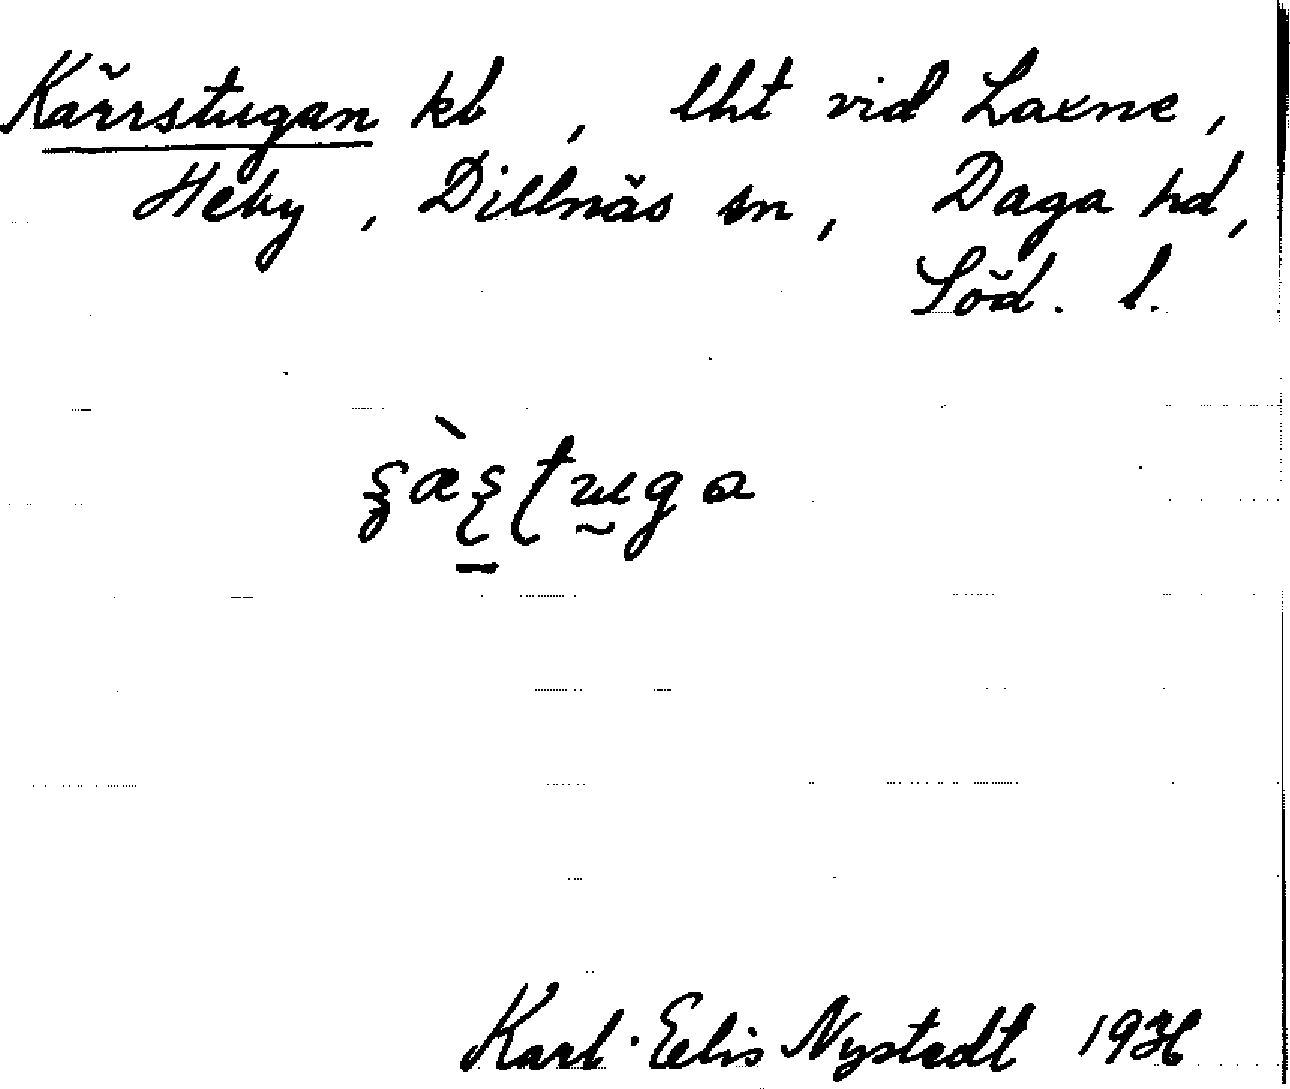 Kärrstugan kl , lht vid Laxne,
Heby, Dillnäs sn, Daga hd,
Söd. l.
Karl-Eelis Nystedt 1936